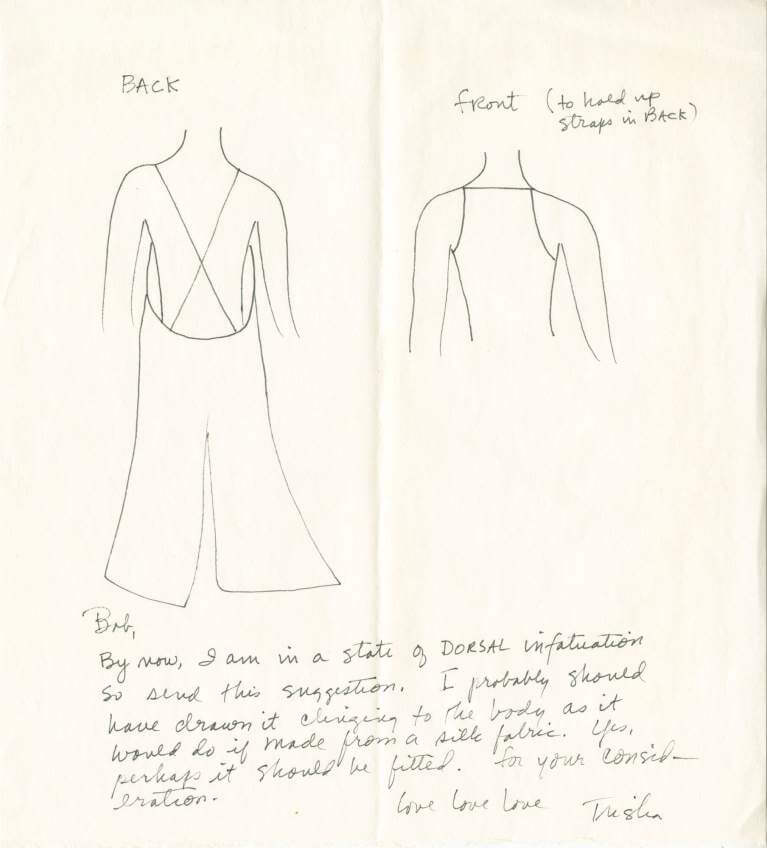 BACK
front (to hold up
straps in BACK)
Bob,
By now, I am in a state of DORSAL infatuation
So send this suggestion. I probably should
have drawn it clinging to the body as it
would do if made from a silk fabric. Yes,
perhaps it should be fitted. for your consid-
eration.
love love love Trisha